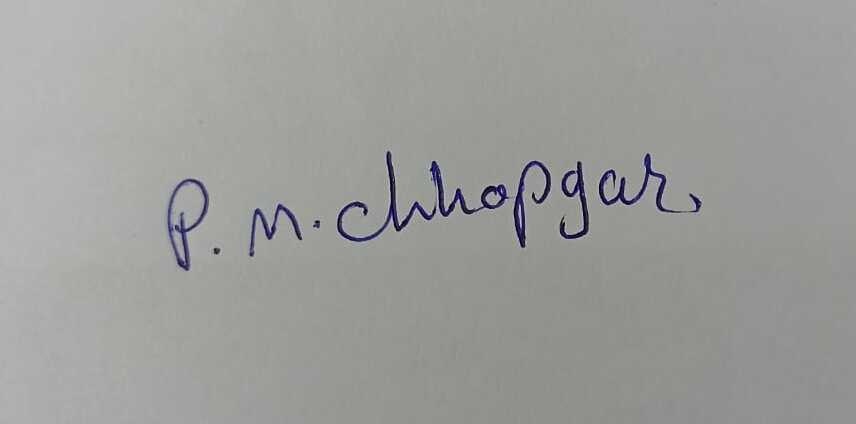 P. M. Chhopgar